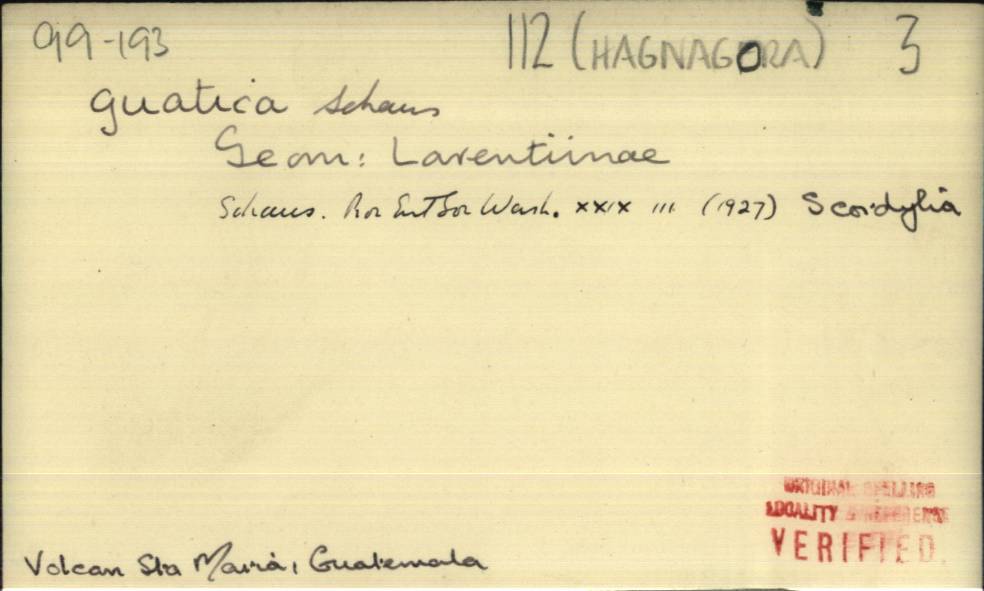 99-193 112 (HAGNAGORA) 3
guatica Schaus
Geom: Larentiinae
Schaus. Proc Ent Soc Wash. XXIX 111 (1927) Scordylia
ORIGINAL SPELLING
LOCALITY & REFERENCE
VERIFIED.
Volcan Sta Maria, Guatemala